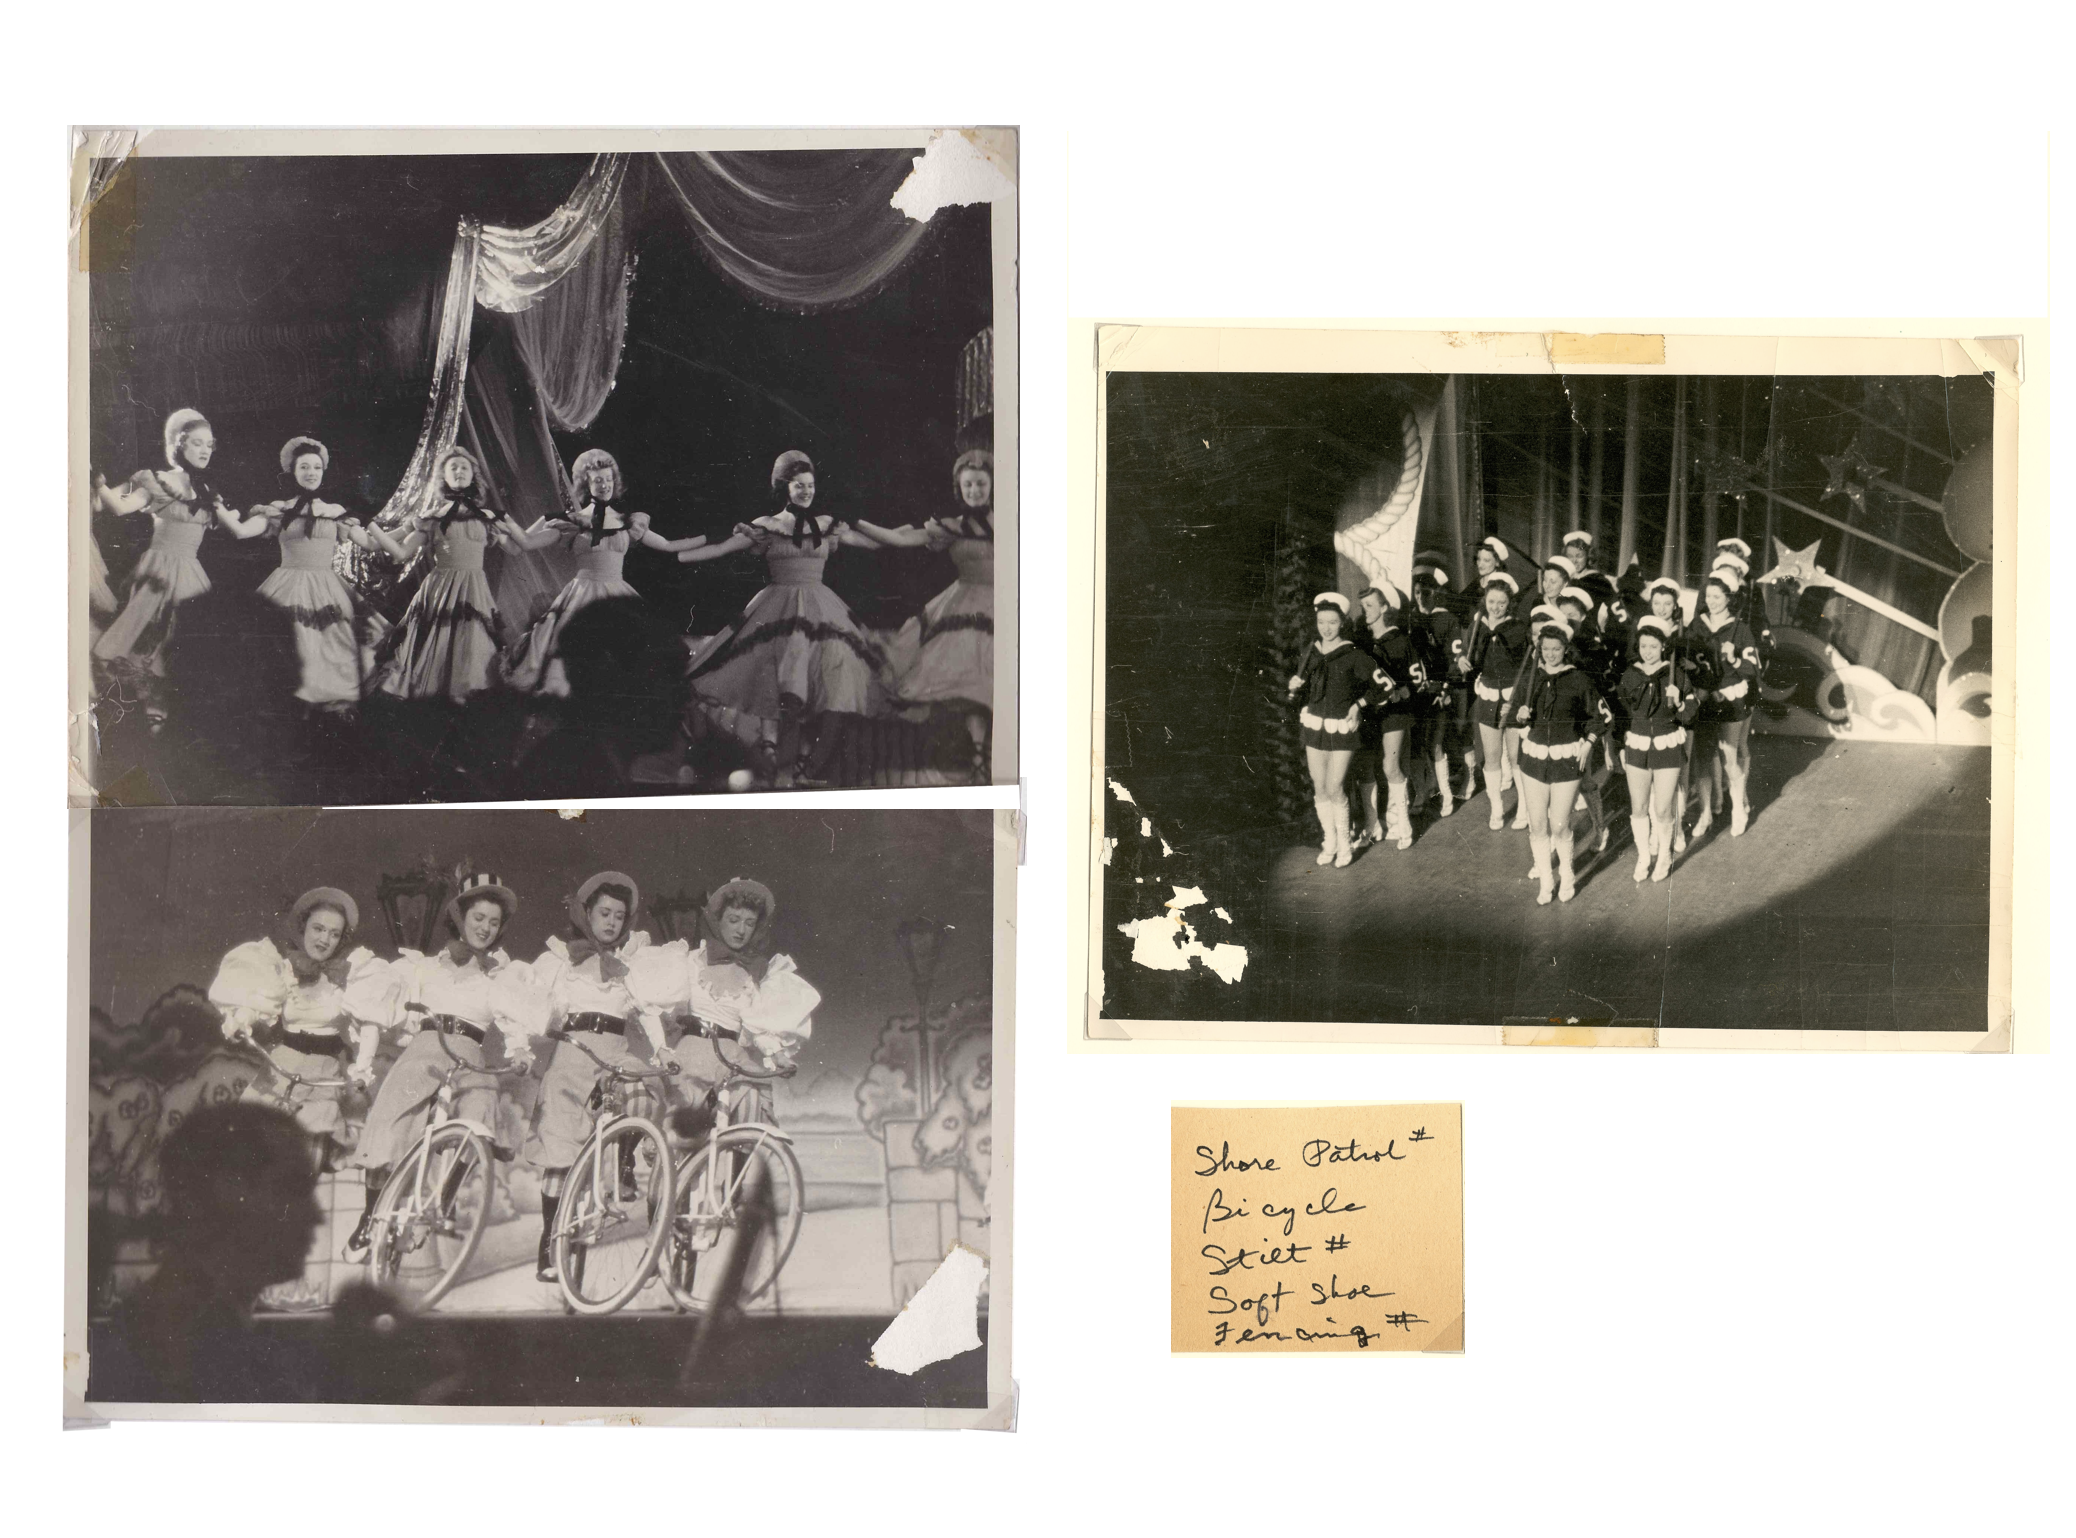 S
S
S
S
S
S
Shore Patrol #
Bicycle
Stilt #
Soft Shoe
Fencing #